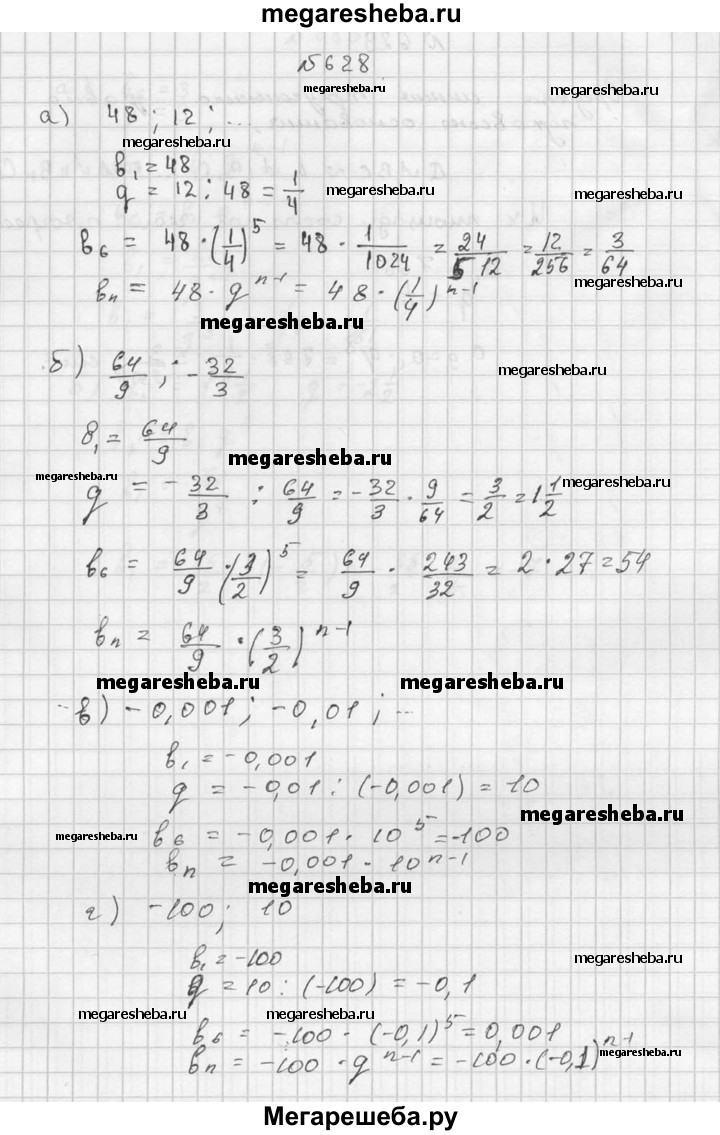 megaresheba.ru
№628
megaresheba.ru
а) 48; 12; ...
megaresheba.ru
b₁ = 48
q = 12 : 48 = 1/4
megaresheba.ru
megaresheba.ru
b₆ = 48 · (1/4)⁵ = 48 · 1/1024 = 24/512 = 12/256 = 3/64
bₙ = 48 · qⁿ⁻¹ = 48 · (1/4)ⁿ⁻¹
megaresheba.ru
megaresheba.ru
б) 64/9 ; -32/3
megaresheba.ru
b₁ = 64/9
megaresheba.ru
megaresheba.ru
q = -32/3 : 64/9 = -32/3 · 9/64 = 3/2 = 1 1/2
megaresheba.ru
b₆ = 64/9 · (3/2)⁵ = 64/9 · 243/32 = 2 · 27 = 54
bₙ = 64/9 · (3/2)ⁿ⁻¹
megaresheba.ru megaresheba.ru
в) -0,001; -0,01; ...
b₁ = -0,001
q = -0,01 : (-0,001) = 10
megaresheba.ru
megaresheba.ru
b₆ = -0,001 · 10⁵ = -100
bₙ = -0,001 · 10ⁿ⁻¹
megaresheba.ru
г) -100; 10
b₁ = -100
megaresheba.ru
q = 10 : (-100) = -0,1
megaresheba.ru megaresheba.ru
b₆ = -100 · (-0,1)⁵ = 0,001
bₙ = -100 · qⁿ⁻¹ = -100 · (-0,1)ⁿ⁻¹
megaresheba.ru
Мегарешеба.ру